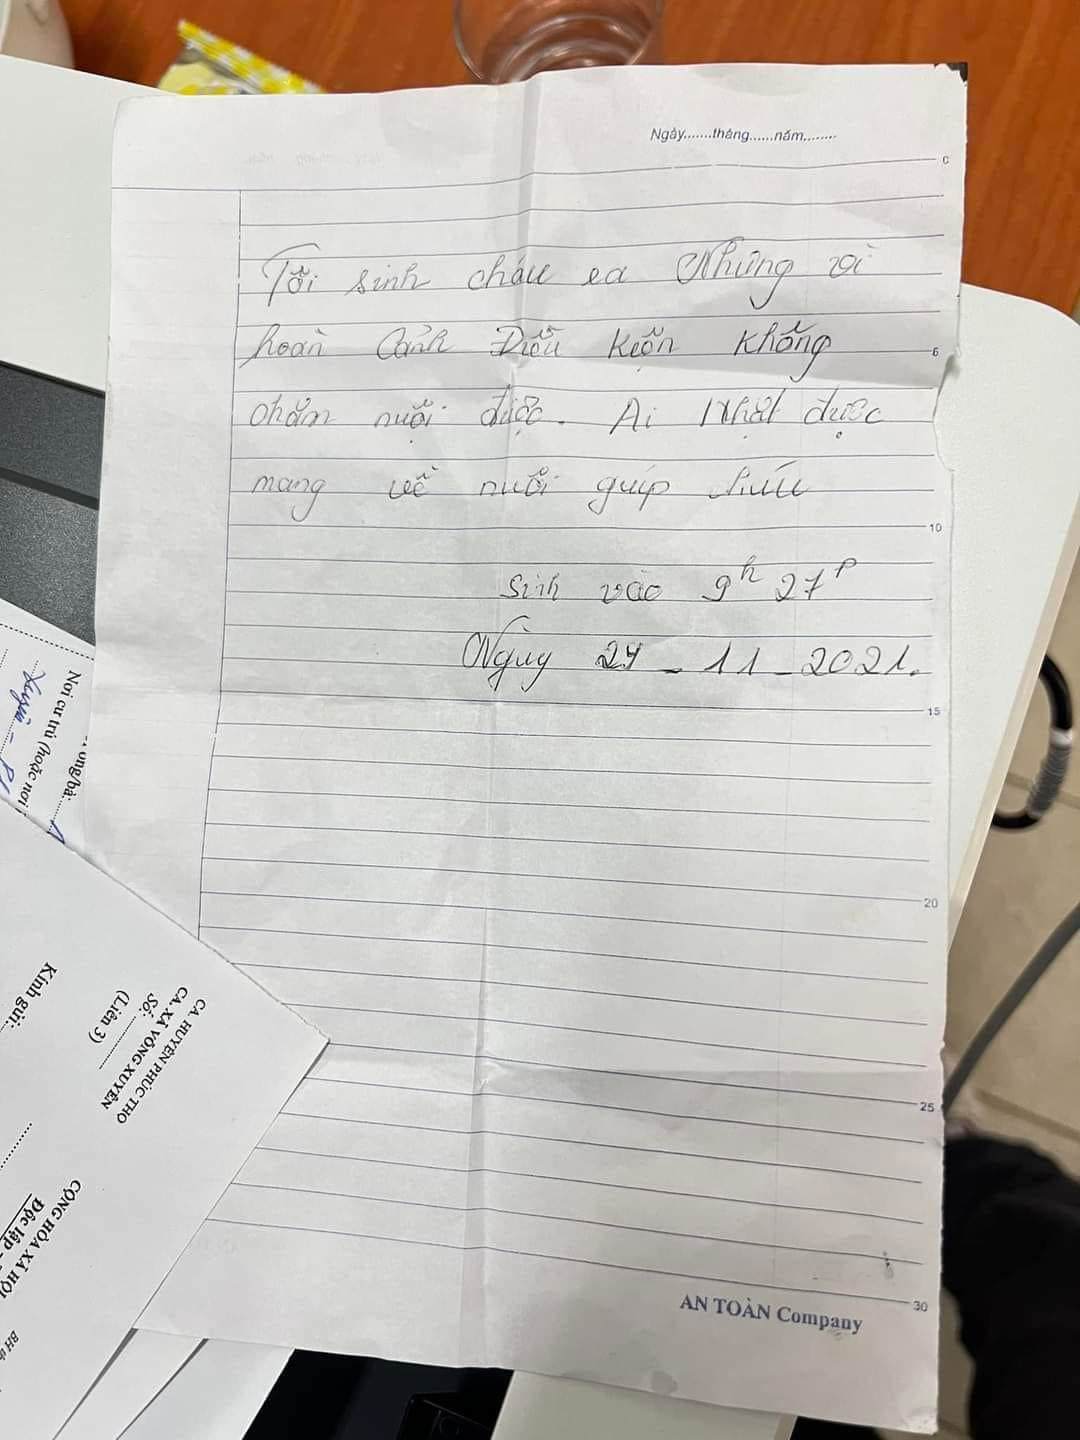 Ngày.......tháng......năm........
0
Tôi sinh cháu ra Nhưng vì
hoàn Cảnh Điều kiện không
6
chăm nuôi được. Ai Nhặt được
mang về nuôi giúp cháu
10
Sinh vào 9h 27p
Ngày 29 - 11 - 2021.
15
20
25
30
AN TOÀN Company
Nơi cư trú (hoặc nơi
ông/bà:
Kính gửi:
CA. HUYỆN PHÚC THỌ
CA. XÃ VÕNG XUYÊN
Số:
(Liên 3)
CỘNG HÒA XÃ HỘI
Độc lập -